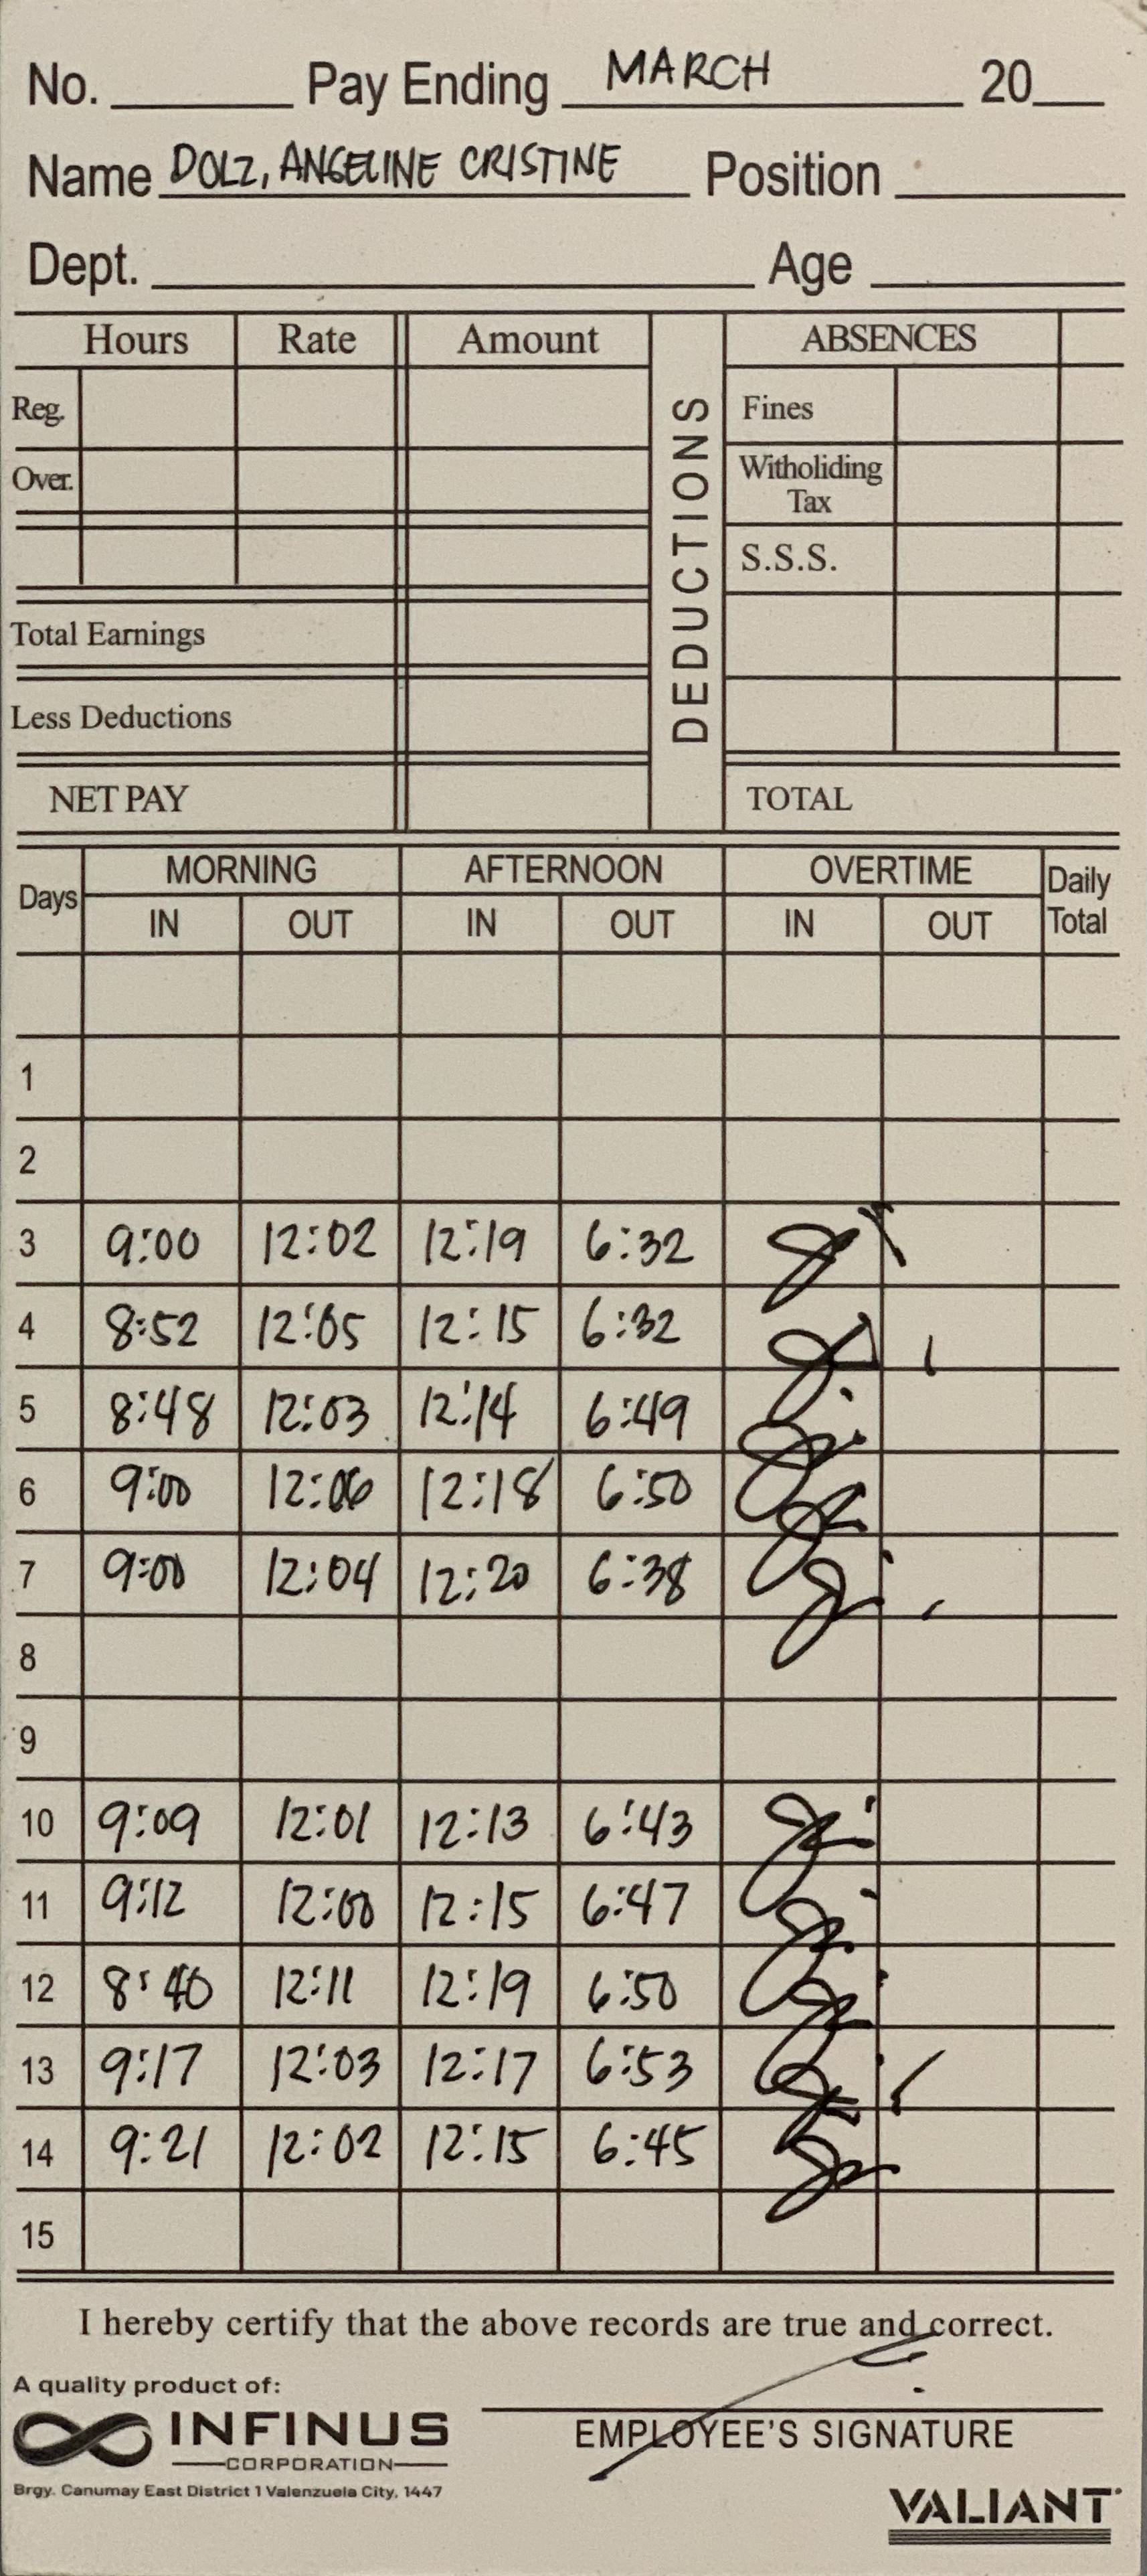 No. Pay Ending MARCH 20
Name DOLZ, ANGELINE CRISTINE Position
Dept. Age
Hours Rate Amount DEDUCTIONS ABSENCES
Reg. Fines
Over. Witholiding Tax
S.S.S.
Total Earnings
Less Deductions
NET PAY TOTAL
Days MORNING AFTERNOON OVERTIME Daily Total
IN OUT IN OUT IN OUT
1
2
3 9:00 12:02 12:19 6:32
4 8:52 12:05 12:15 6:32
5 8:48 12:03 12:14 6:49
6 9:00 12:06 12:18 6:50
7 9:00 12:04 12:20 6:38
8
9
10 9:09 12:01 12:13 6:43
11 9:12 12:00 12:15 6:47
12 8:40 12:11 12:19 6:50
13 9:17 12:03 12:17 6:53
14 9:21 12:02 12:15 6:45
15
I hereby certify that the above records are true and correct.
A quality product of:
INFINUS
CORPORATION
Brgy. Canumay East District 1 Valenzuela City, 1447
EMPLOYEE'S SIGNATURE
VALIANT